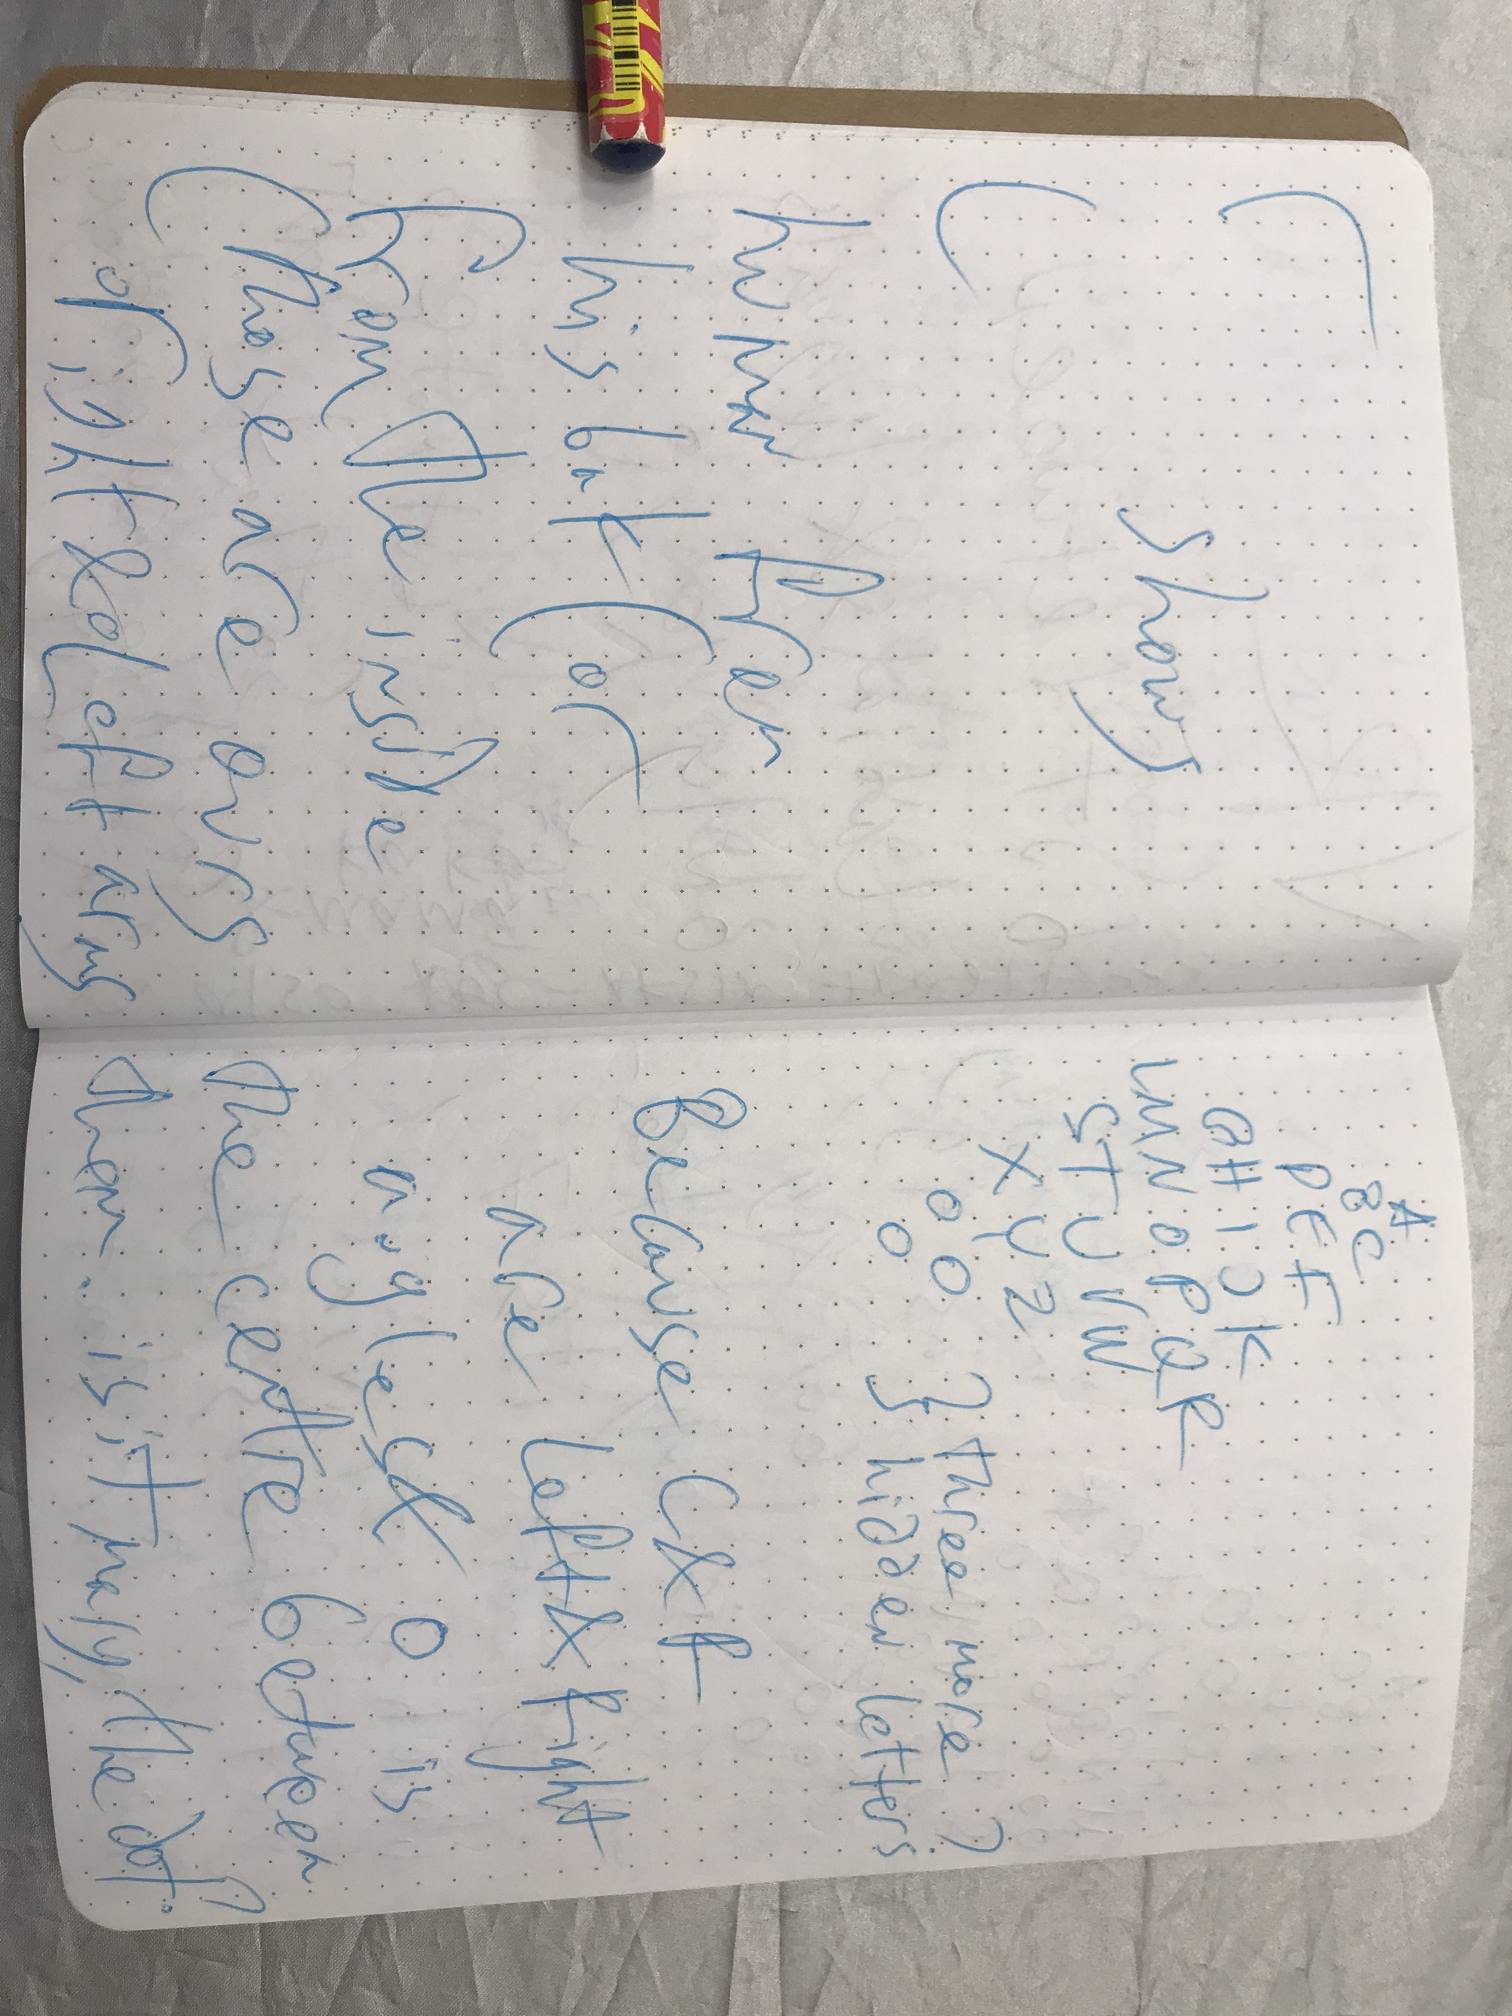 shows
human
his bat (or
from the inside
(those are ours
right & left arms
A
B C
D E F
G H I J K
L M N O P Q R
S T U V W
X Y Z
O O } three more ?
O } hidden letters
Because C & F
are left & right
angles & O is
the centre between
them. is it Mary, the dot?